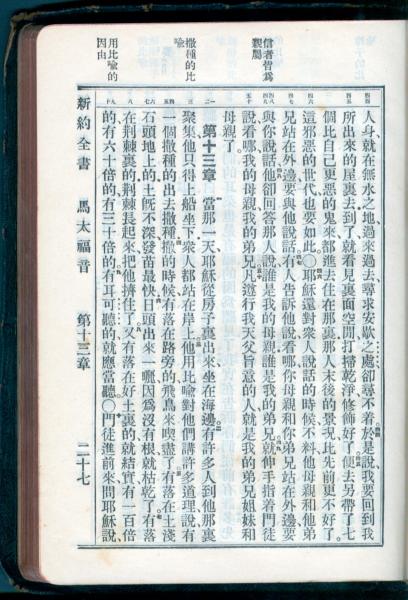 信者皆爲
親屬
撒種的比
喻
用比喻的
因由
人身就在無水之地過來過去尋求安歇之處卻尋不着於是說我要回到我
所出來的屋裏去到了就看見裏面空閒打掃乾淨修飾好了便去另帶了七
個比自己更惡的鬼來都進去住在那裏那人末後的景況比先前更不好了
這邪惡的世代也要如此〇耶穌還對衆人說話的時候不料他母親和他弟
兄站在外邊要與他說話有人告訴他說看哪你母親和你弟兄站在外邊要
與你說話他卻回答那人說誰是我的母親誰是我的弟兄就伸手指着門徒
說看哪我的母親我的弟兄凡遵行我天父旨意的人就是我的弟兄姐妹和
母親了
第十三章 當那一天耶穌從房子裏出來坐在海邊有許多人到他那裏
聚集他只得上船坐下衆人都站在岸上他用比喻對他們講許多道理說有
一個撒種的出去撒種撒的時候有落在路旁的飛鳥來喫盡了有落在土淺
石頭地上的土旣不深發苗最快日頭出來一曬因爲沒有根就枯乾了有落
在荆棘裏的荆棘長起來把他擠住了又有落在好土裏的就結實有一百倍
的有六十倍的有三十倍的有耳可聽的就應當聽〇門徒進前來問耶穌說
新約全書 馬太福音 第十三章 二十七